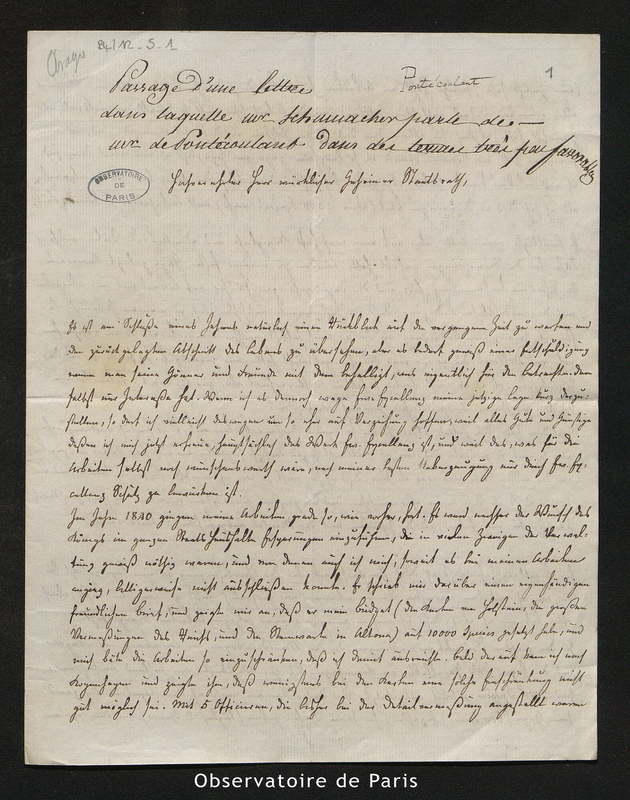 Arago
D4/12-S-1
Pontécoulant
1
Passage d'une lettre
dans laquelle mr Schumacher parle de
mr de Pontécoulant dans des termes très peu favorables
OBSERVATOIRE
DE
PARIS
Hochverehrter Herr wirklicher Geheimer Staatsrath,
Es ist am Schluße eines Jahres natürlich einen Rückblick auf die vergangene Zeit zu werfen und
den zurückgelegten Abschnitt des Lebens zu übersehen, aber es bedarf gewiß einer Entschuldigung
wenn man seine Gönner und Freunde mit dem behelligt, was eigentlich für den Betrachtenden
selbst nur Interesse hat. Wenn ich es dennoch wage Ew. Excellenz meine jetzige Lage kurz darzu-
stellen, so darf ich vielleicht deswegen um so eher auf Verzeihung hoffen, weil alles Gute und Günstige
deßen ich mich jetzt erfreue, hauptsächlich das Werk Ew. Excellenz ist, und weil das, was für die
Arbeiten selbst noch wünschenswerth wäre, nach meiner besten Ueberzeugung nur durch Ew. Ex-
cellenz Schutz zu bewürken ist.
Im Jahre 1840 gingen meine Arbeiten grade so, wie vorher, fort. Es ward nachher der Wunsch des
Königs im ganzen Staatshaushalte Ersparungen einzuführen, die in vielen Zweigen der Verwal-
tung gewiß nöthig waren, und von denen auch ich mich, soweit es bei meinen Arbeiten
anging, billigerweise nicht ausschließen konnte. Er schrieb mir darüber einen eigenhändigen
freundlichen Brief, und zeigte mir an, daß er mein Budget (die Karten von Holstein, die großen
Vermeßungen des Staats, und die Sternwarte in Altona) auf 10000 Species gesetzt habe, und
mich bäte die Arbeiten so einzuschränken, daß ich damit ausreichte. Bald darauf kam ich nach
Kopenhagen und zeigte ihm, daß wenigstens bei den Karten eine solche Einschränkung nicht
gut möglich sei. Mit 5 Officieren, die bisher bei der Detailvermeßung angestellt waren
Observatoire de Paris